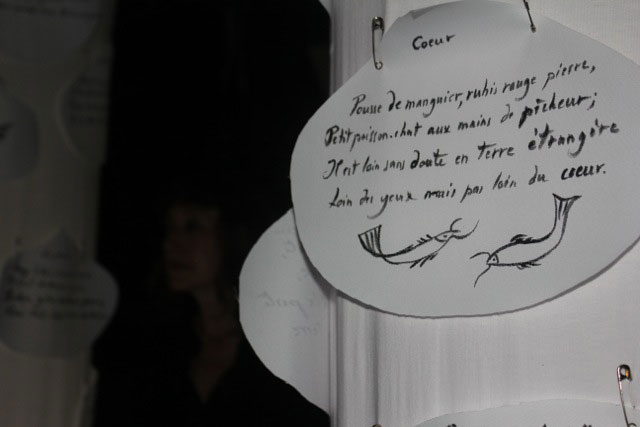 Coeur
Pousse de manguier, rubis rouge pierre,
Petit poisson.chat aux mains de pêcheur;
Il est loin sans doute en terre étrangère
Loin des yeux mais pas loin du coeur.